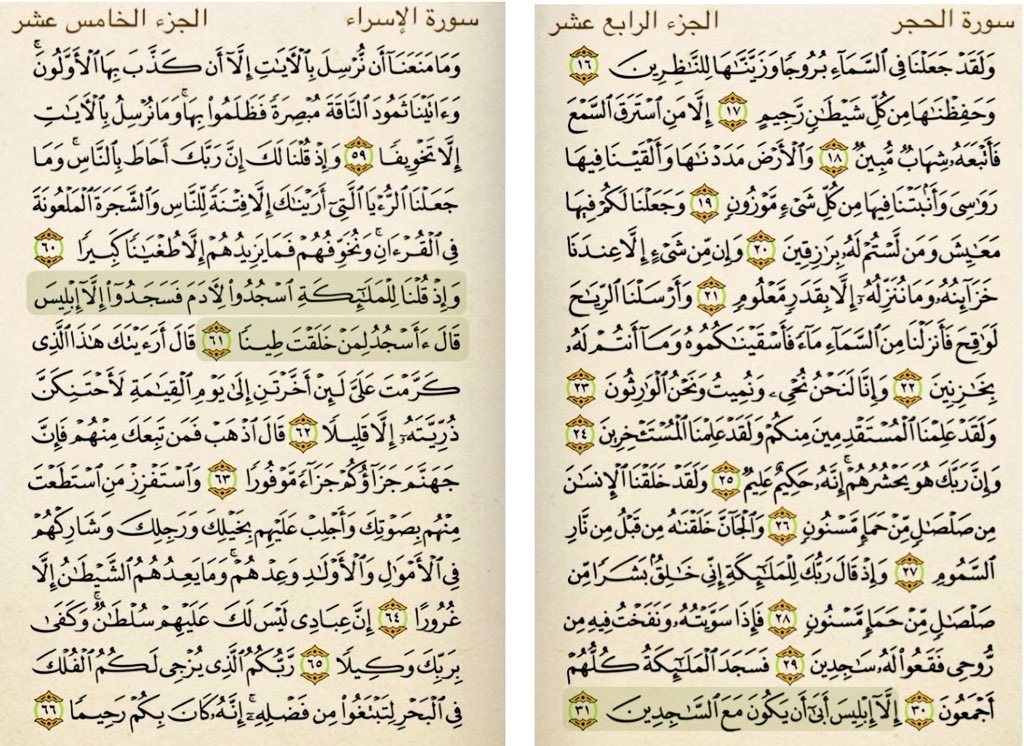 سورة الحجر الجزء الرابع عشر
وَلَقَدْ جَعَلْنَا فِي ٱلسَّمَآءِ بُرُوجًا وَزَيَّنَّٰهَا لِلنَّٰظِرِينَ ١٦
وَحَفِظْنَٰهَا مِن كُلِّ شَيْطَٰنٍ رَّجِيمٍ ١٧ إِلَّا مَنِ ٱسْتَرَقَ ٱلسَّمْعَ
فَأَتْبَعَهُۥ شِهَابٌ مُّبِينٌ ١٨ وَٱلْأَرْضَ مَدَدْنَٰهَا وَأَلْقَيْنَا فِيهَا
رَوَٰسِىَ وَأَنۢبَتْنَا فِيهَا مِن كُلِّ شَىْءٍ مَّوْزُونٍ ١٩ وَجَعَلْنَا لَكُمْ فِيهَا
مَعَٰيِشَ وَمَن لَّسْتُمْ لَهُۥ بِرَٰزِقِينَ ٢٠ وَإِن مِّن شَىْءٍ إِلَّا عِندَنَا
خَزَآئِنُهُۥ وَمَا نُنَزِّلُهُۥٓ إِلَّا بِقَدَرٍ مَّعْلُومٍ ٢١ وَأَرْسَلْنَا ٱلرِّيَٰحَ
لَوَٰقِحَ فَأَنزَلْنَا مِنَ ٱلسَّمَآءِ مَآءً فَأَسْقَيْنَٰكُمُوهُ وَمَآ أَنتُمْ لَهُۥ
بِخَٰزِنِينَ ٢٢ وَإِنَّا لَنَحْنُ نُحْىِۦ وَنُمِيتُ وَنَحْنُ ٱلْوَٰرِثُونَ ٢٣
وَلَقَدْ عَلِمْنَا ٱلْمُسْتَقْدِمِينَ مِنكُمْ وَلَقَدْ عَلِمْنَا ٱلْمُسْتَـْٔخِرِينَ ٢٤
وَإِنَّ رَبَّكَ هُوَ يَحْشُرُهُمْ ۚ إِنَّهُۥ حَكِيمٌ عَلِيمٌ ٢٥ وَلَقَدْ خَلَقْنَا ٱلْإِنسَٰنَ
مِن صَلْصَٰلٍ مِّنْ حَمَإٍ مَّسْنُونٍ ٢٦ وَٱلْجَآنَّ خَلَقْنَٰهُ مِن قَبْلُ مِن نَّارِ
ٱلسَّمُومِ ٢٧ وَإِذْ قَالَ رَبُّكَ لِلْمَلَٰٓئِكَةِ إِنِّى خَٰلِقٌۢ بَشَرًا مِّن
صَلْصَٰلٍ مِّنْ حَمَإٍ مَّسْنُونٍ ٢٨ فَإِذَا سَوَّيْتُهُۥ وَنَفَخْتُ فِيهِ مِن
رُّوحِى فَقَعُوا۟ لَهُۥ سَٰجِدِينَ ٢٩ فَسَجَدَ ٱلْمَلَٰٓئِكَةُ كُلُّهُمْ
أَجْمَعُونَ ٣٠ إِلَّآ إِبْلِيسَ أَبَىٰٓ أَن يَكُونَ مَعَ ٱلسَّٰجِدِينَ ٣١
سورة الإسراء الجزء الخامس عشر
وَمَا مَنَعَنَآ أَن نُّرْسِلَ بِٱلْءَايَٰتِ إِلَّآ أَن كَذَّبَ بِهَا ٱلْأَوَّلُونَ ۚ
وَءَاتَيْنَا ثَمُودَ ٱلنَّاقَةَ مُبْصِرَةً فَظَلَمُوا۟ بِهَا ۚ وَمَا نُرْسِلُ بِٱلْءَايَٰتِ
إِلَّا تَخْوِيفًا ٥٩ وَإِذْ قُلْنَا لَكَ إِنَّ رَبَّكَ أَحَاطَ بِٱلنَّاسِ ۚ وَمَا
جَعَلْنَا ٱلرُّءْيَا ٱلَّتِىٓ أَرَيْنَٰكَ إِلَّا فِتْنَةً لِّلنَّاسِ وَٱلشَّجَرَةَ ٱلْمَلْعُونَةَ
فِى ٱلْقُرْءَانِ ۚ وَنُخَوِّفُهُمْ فَمَا يَزِيدُهُمْ إِلَّا طُغْيَٰنًا كَبِيرًا ٦٠
وَإِذْ قُلْنَا لِلْمَلَٰٓئِكَةِ ٱسْجُدُوا۟ لِءَادَمَ فَسَجَدُوٓا۟ إِلَّآ إِبْلِيسَ
قَالَ ءَأَسْجُدُ لِمَنْ خَلَقْتَ طِينًا ٦١ قَالَ أَرَءَيْتَكَ هَٰذَا ٱلَّذِى
كَرَّمْتَ عَلَىَّ لَئِنْ أَخَّرْتَنِ إِلَىٰ يَوْمِ ٱلْقِيَٰمَةِ لَأَحْتَنِكَنَّ
ذُرِّيَّتَهُۥٓ إِلَّا قَلِيلًا ٦٢ قَالَ ٱذْهَبْ فَمَن تَبِعَكَ مِنْهُمْ فَإِنَّ
جَهَنَّمَ جَزَآؤُكُمْ جَزَآءً مَّوْفُورًا ٦٣ وَٱسْتَفْزِزْ مَنِ ٱسْتَطَعْتَ
مِنْهُم بِصَوْتِكَ وَأَجْلِبْ عَلَيْهِم بِخَيْلِكَ وَرَجِلِكَ وَشَارِكْهُمْ
فِى ٱلْأَمْوَٰلِ وَٱلْأَوْلَٰدِ وَعِدْهُمْ ۚ وَمَا يَعِدُهُمُ ٱلشَّيْطَٰنُ إِلَّا
غُرُورًا ٦٤ إِنَّ عِبَادِى لَيْسَ لَكَ عَلَيْهِمْ سُلْطَٰنٌ ۚ وَكَفَىٰ
بِرَبِّكَ وَكِيلًا ٦٥ رَّبُّكُمُ ٱلَّذِى يُزْجِى لَكُمُ ٱلْفُلْكَ
فِى ٱلْبَحْرِ لِتَبْتَغُوا۟ مِن فَضْلِهِۦٓ ۚ إِنَّهُۥ كَانَ بِكُمْ رَحِيمًا ٦٦